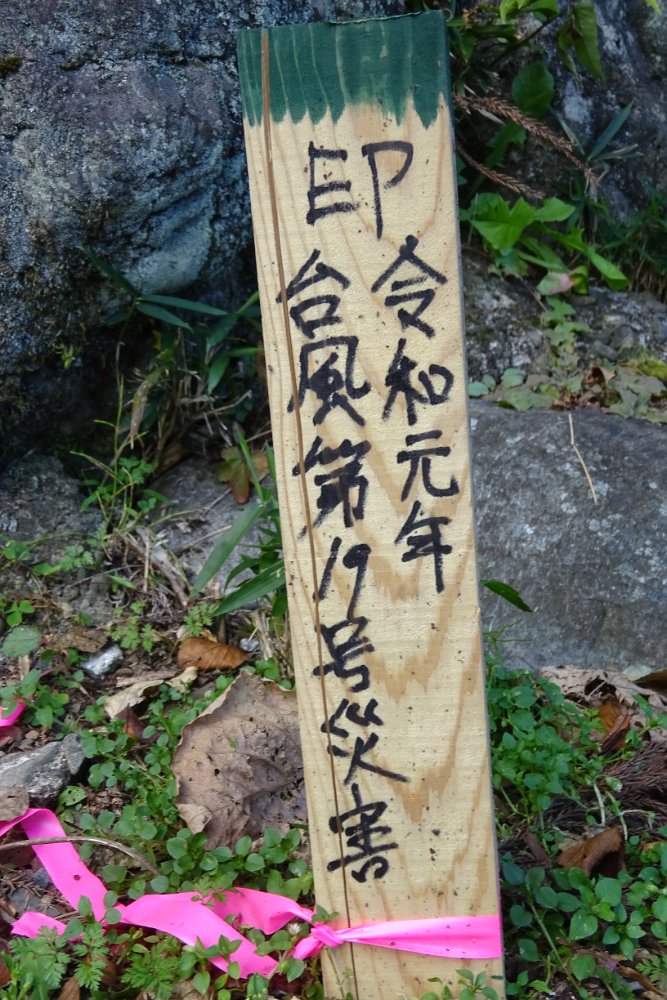 印
令和元年
台風第19号災害